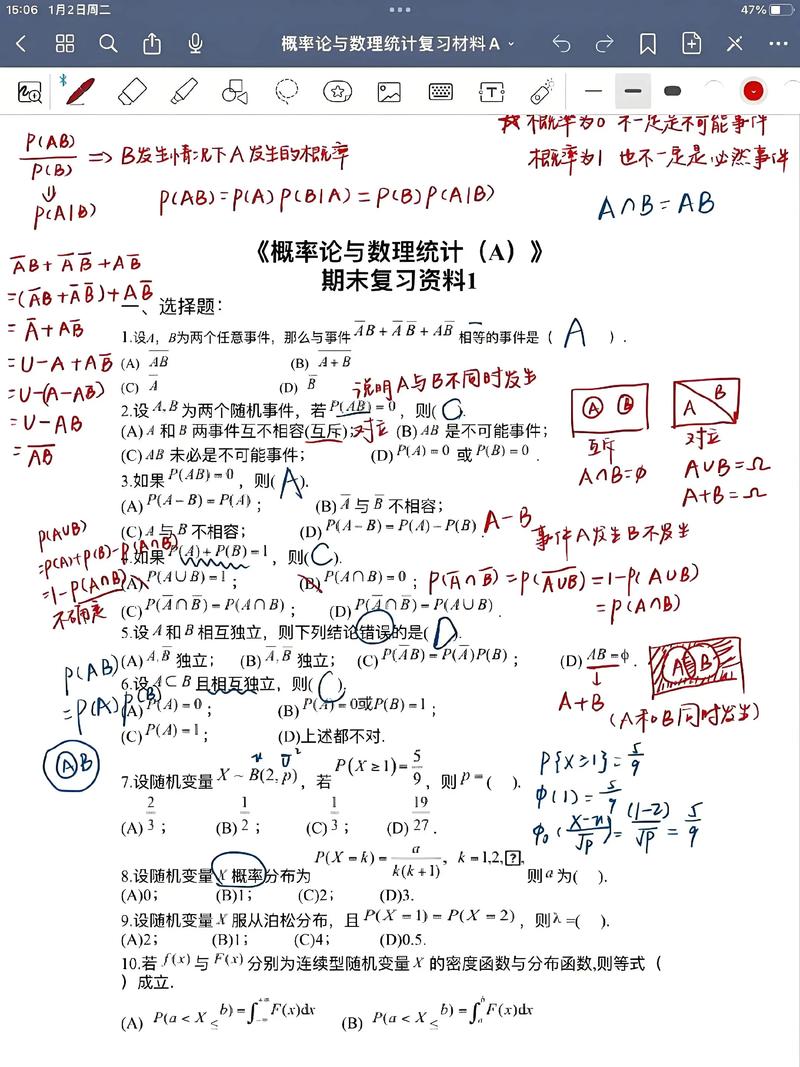 15:06 1月2日周二
47%
概率论与数理统计复习材料 A
P(AB)/P(B) ⇒ B发生情况下A发生的概率
⇓
P(A|B)
P(AB)=P(A)P(B|A)=P(B)P(A|B)
概率为0 不一定是不可能事件
概率为1 也不一定是必然事件
A∩B=AB
《概率论与数理统计（A）》
期末复习资料1
A̅B+A̅ B̅+AB̅
=(A̅B+A̅B̅)+AB̅
=A̅+AB̅
=U-A+AB̅
=U-(A-AB̅)
=U-AB
=A̅B̅
一、选择题：
1.设A，B为两个任意事件，那么与事件 A̅B+A̅ B̅+AB̅ 相等的事件是（ A ）.
(A) A̅B̅ (B) A̅+̅B̅
(C) A̅ (D) B̅
说明A与B不同时发生
2.设 A,B 为两个随机事件，若 P(AB)=0 ，则( C ).
(A) A 和 B 两事件互不相容(互斥)； 对立 (B) AB 是不可能事件；
(C) AB 未必是不可能事件； (D) P(A)=0 或 P(B)=0 .
A B
互斥
A∩B=φ
A B
对立
A∪B=Ω
A+B=Ω
3.如果 P(AB)=0 ，则( A ).
(A) P(A−B)=P(A) ； (B) A̅ 与 B̅ 不相容；
(C) A̅ 与 B̅ 不相容； (D) P(A−B)=P(A)−P(B) .
A-B
事件A发生B不发生
P(A∪B)
=P(A)+P(B)-P(A∩B)
=1-P(A∩B)
不确定
4.如果 P(A)+P(B)=1 ，则( C ).
(A) P(A∪B)=1 ； (B) P(A∩B)=0 ；
(C) P(A̅∩B̅)=P(A∩B) ； (D) P(A̅∩B̅)=P(A∪B) .
P(A̅∩B̅)=P(A̅∪̅B̅)=1-P(A∪B)
=P(A∩B)
5.设 A 和 B 相互独立，则下列结论错误的是( D ).
(A) A,B̅ 独立； (B) A̅,B̅ 独立； (C) P(A̅B)=P(A̅)P(B) ； (D) AB=ϕ .
A+B
A B
(A和B同时发生)
P(AB)
=P(A)P(B)
A B
6.设 A⊂B 且相互独立，则( C ).
(A) P(A)=0 ； (B) P(A)=0或P(B)=1 ；
(C) P(A)=1 ； (D)上述都不对.
7.设随机变量 X~B(2,p)，若 P(X≥1)=5/9 ，则 p=( ).
(A) 2/3 ； (B) 1/2 ； (C) 1/3 ； (D) 19/27 .
P{X≥1}=5/9
φ(1)=5/9
8.设随机变量 X 概率分布为 P(X=k)=a/k(k+1), k=1,2,?, 则 a 为( ).
(A)0； (B)1； (C)2； (D)3.
9.设随机变量 X 服从泊松分布，且 P(X=1)=P(X=2) ，则 λ=( ).
(A)2； (B)1； (C)4； (D)0.5.
10.若 f(x) 与 F(x) 分别为连续型随机变量 X 的密度函数与分布函数,则等式（
）成立.
(A) P(a<X≤b)=∫_{-∞}^{+∞}F(x)dx (B) P(a<X≤b)=∫_a^b F(x)dx